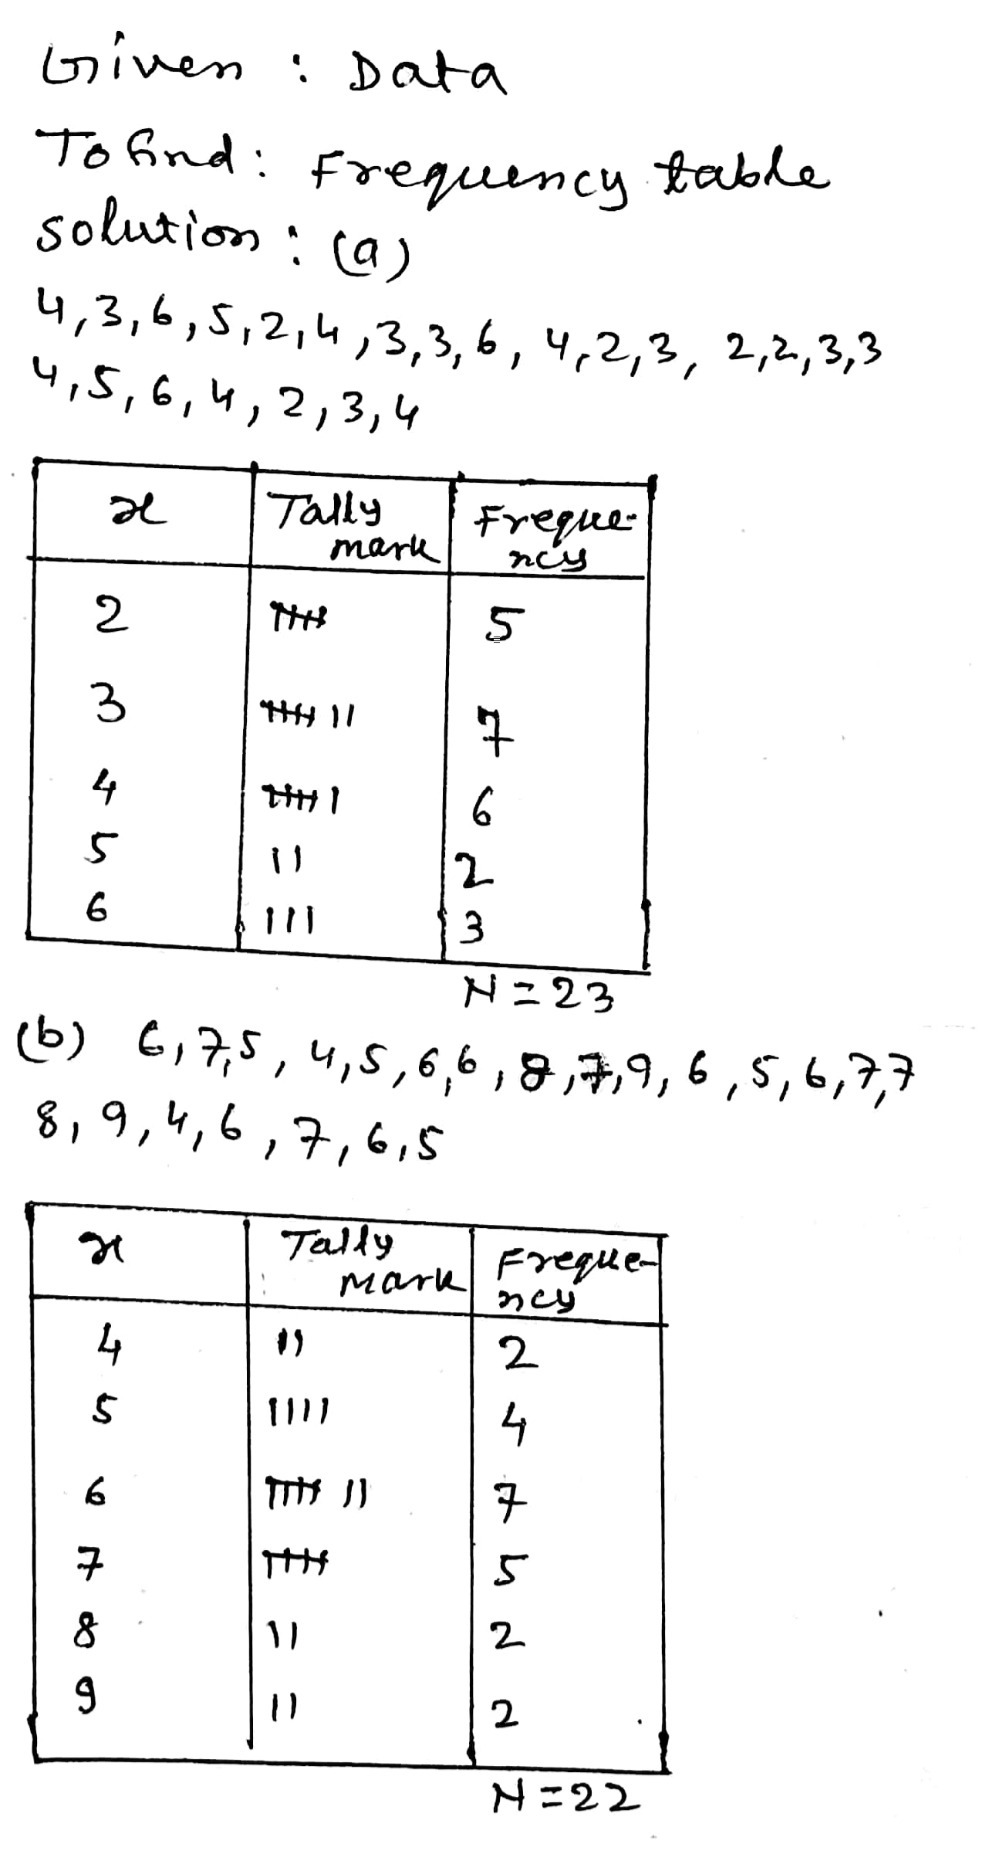 Given : Data
To find : Frequency table
solution : (a)
4,3,6,5,2,4,3,3,6, 4,2,3, 2,2,3,3
4,5,6,4,2,3,4
x Tally mark Freque-ncy
2 𝍸 5
3 𝍸 || 7
4 𝍸 | 6
5 || 2
6 ||| 3
N = 23
(b) 6,7,5, 4,5,6,6,8,7,9,6,5,6,7,7
8,9,4,6,7,6,5
x Tally Mark Freque-ncy
4 || 2
5 |||| 4
6 𝍸 || 7
7 𝍸 5
8 || 2
9 || 2
N = 22